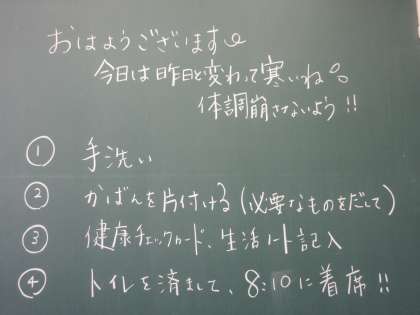 おはようございます
今日は昨日と変わって寒いね。
体調崩さないよう!!
① 手洗い
② かばんを片付ける(必要なものをだして)
③ 健康チェックカード、生活ノート記入
④ トイレを済まして、8:10に着席!!